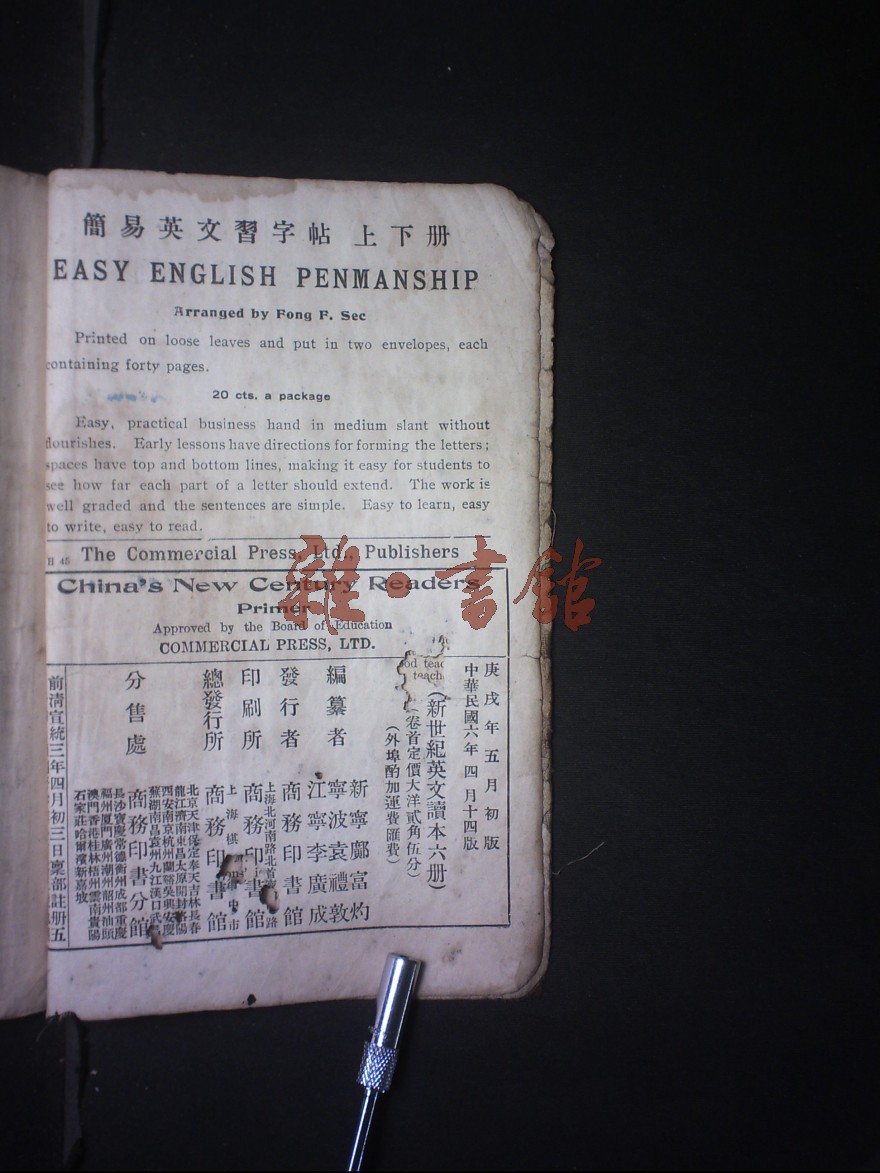 簡易英文習字帖 上下册
EASY ENGLISH PENMANSHIP
Arranged by Fong F. Sec
Printed on loose leaves and put in two envelopes, each
containing forty pages.
20 cts. a package
Easy, practical business hand in medium slant without
flourishes. Early lessons have directions for forming the letters;
spaces have top and bottom lines, making it easy for students to
see how far each part of a letter should extend. The work is
well graded and the sentences are simple. Easy to learn, easy
to write, easy to read.
H 45 The Commercial Press, Ltd., Publishers
China's New Century Readers
Primer
Approved by the Board of Education
COMMERCIAL PRESS, LTD.
雜·書館
庚戌年五月初版
中華民國六年四月十四版
(新世紀英文讀本六册)
(卷首定價大洋貳角伍分)
(外埠酌加運費匯費)
編纂者
新寧鄺富灼
寧波袁禮敦
江寧李廣成
發行者 商務印書館
印刷所
上海北河南路北首 路
商務印書館
總發行所
上海棋 中市
商務印書館
分售處
北京天津保定奉天吉林長春
龍江濟南東昌太原開封洛陽
西安南京杭州蘭谿吳興安慶
蕪湖南昌袁州九江漢口武昌
商務印書分館
長沙寶慶常德衡州成都重慶
福州厦門廣州潮州韶州汕頭
澳門香港桂林梧州雲南貴陽
石家莊哈爾濱新嘉坡
前清宣統三年四月初三日稟部註册五